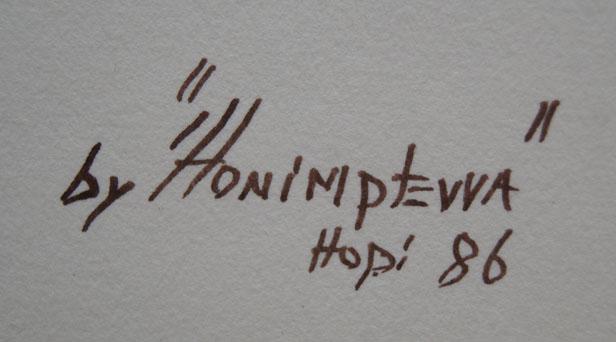 by "Honimptewa"
Hopi 86